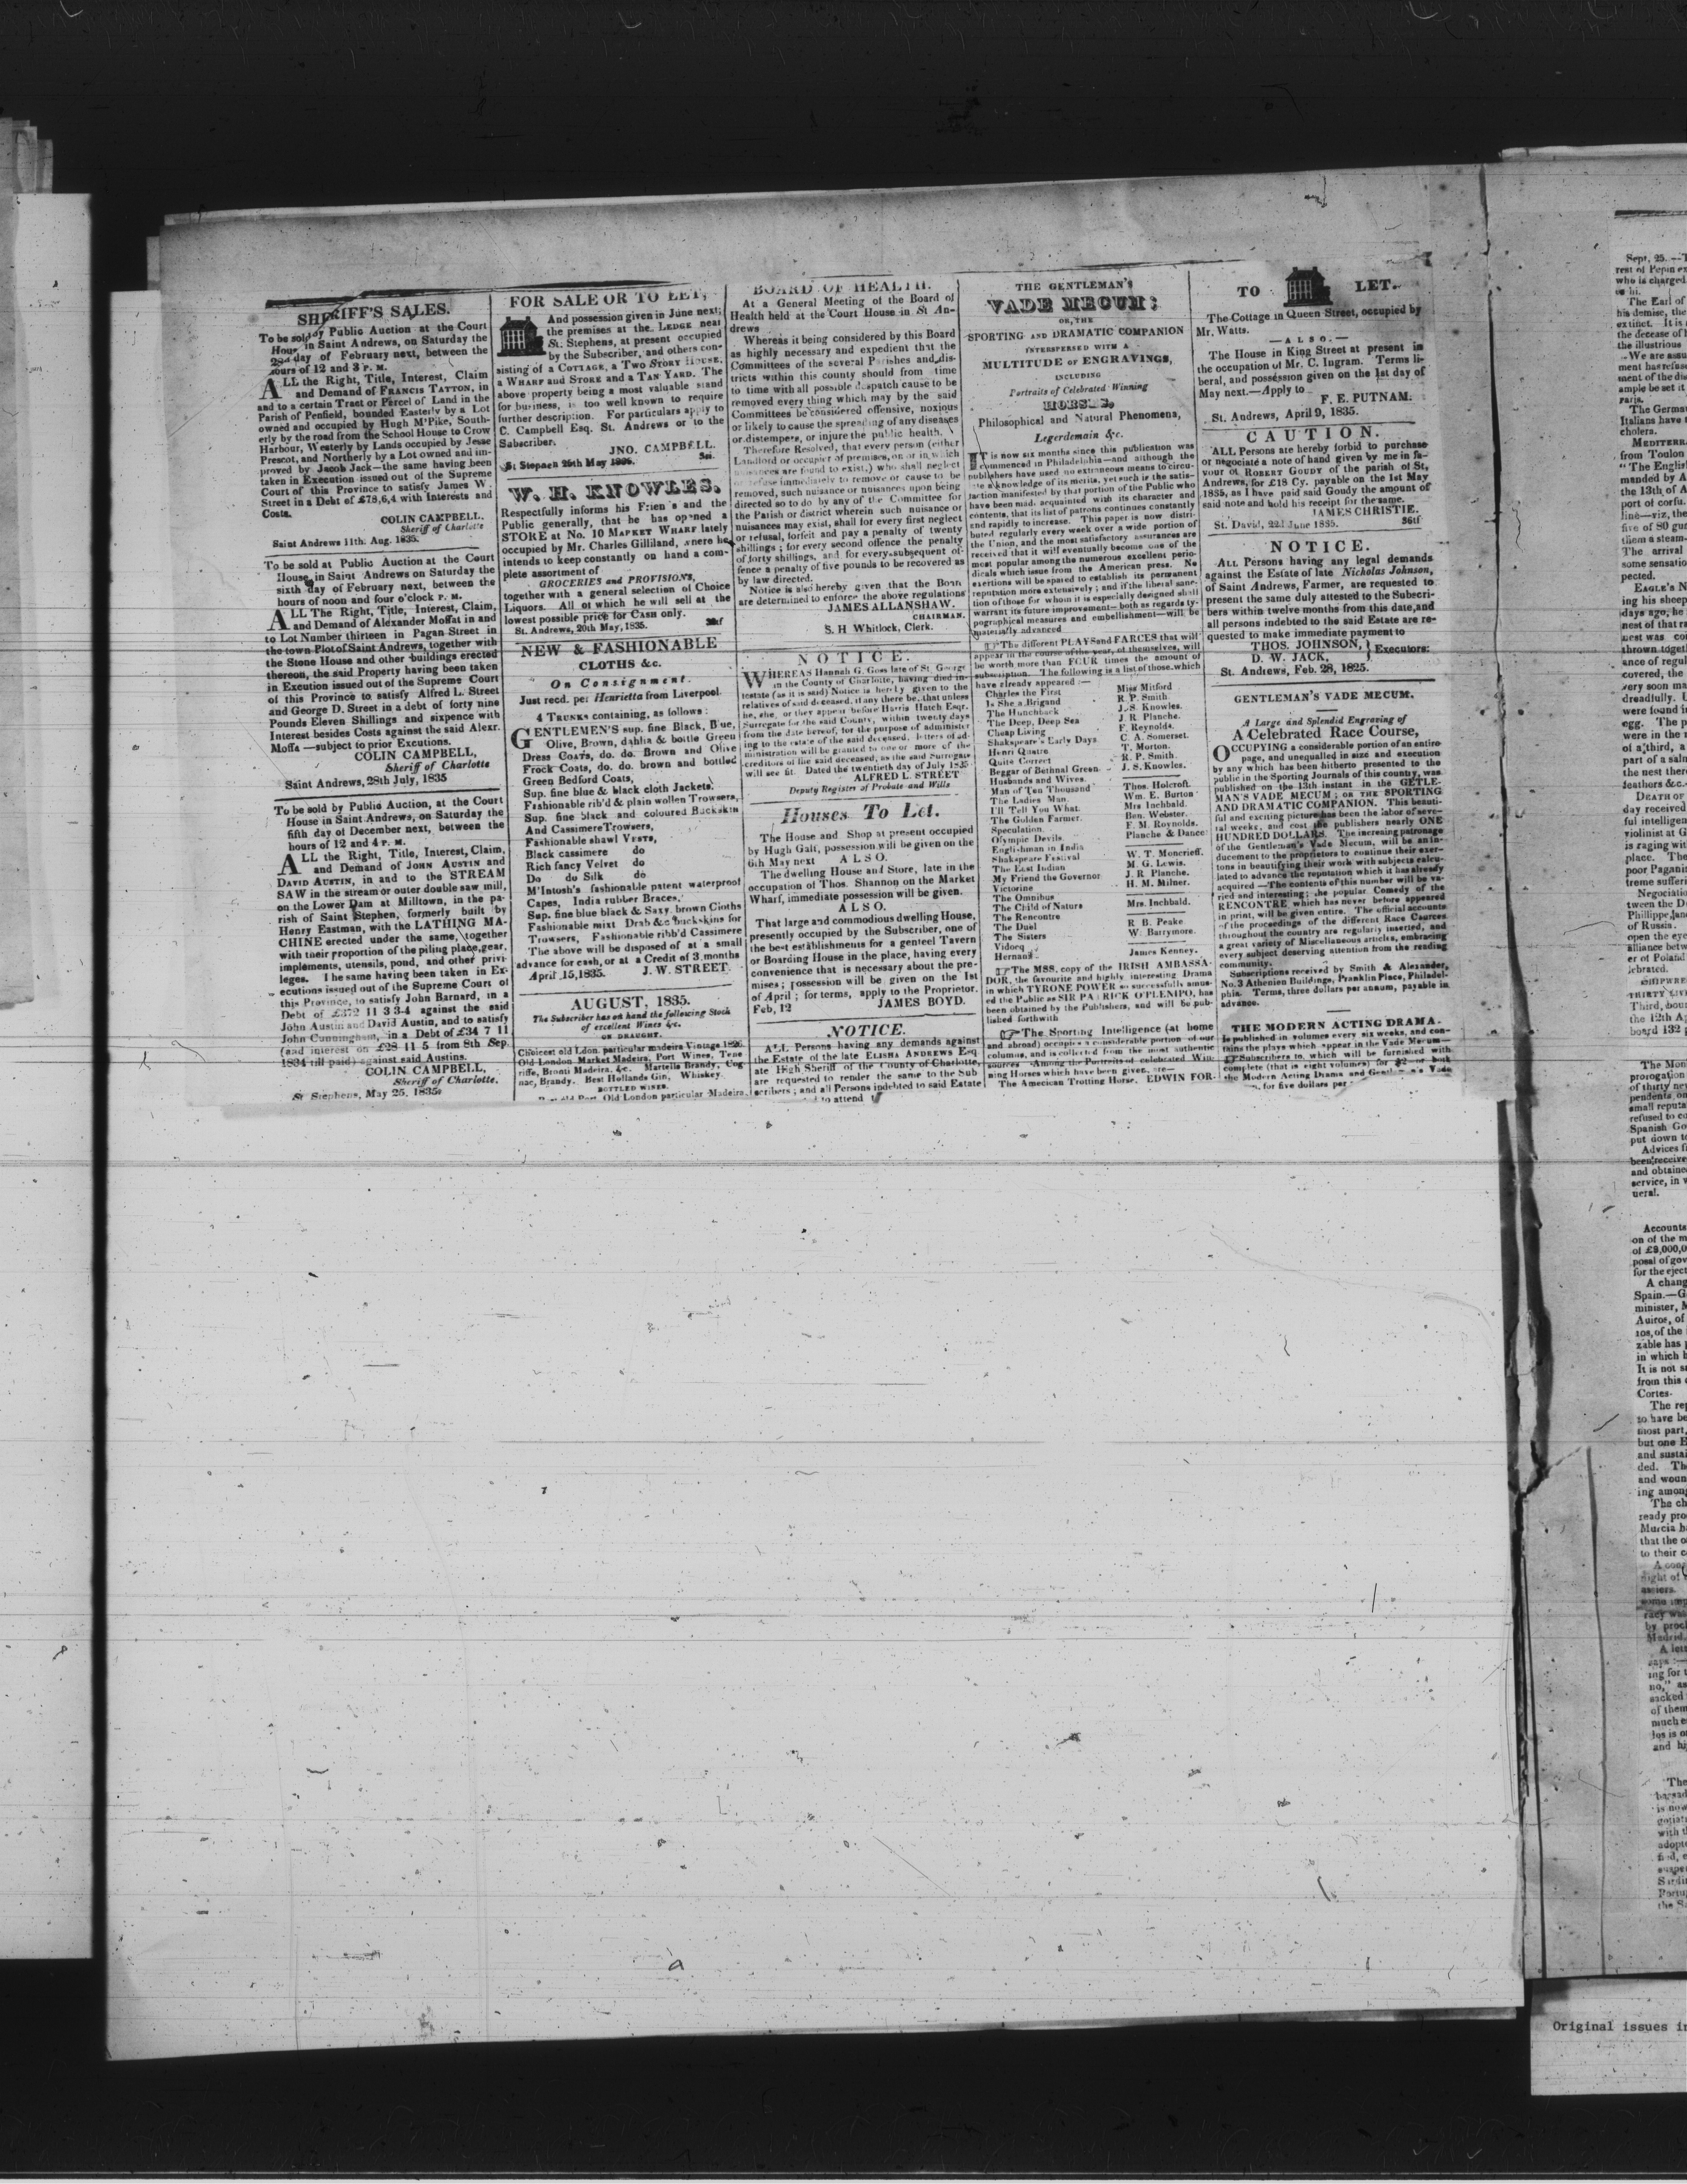 SHERIFF'S SALES.
To be sold by Public Auction at the Court
House in Saint Andrews, on Saturday the
22nd day of February next, between the
hours of 12 and 3 P. M.
ALL the Right, Title, Interest, Claim
and Demand of FRANCIS TATTON, in
and to a certain Tract or Percel of Land in the
Parish of Penfield, bounded Easterly by a Lot
owned and occupied by Hugh M'Pike, South-
erly by the road from the School House to Crow
Harbour, Westerly by Lands occupied by Jesse
Prescot, and Northerly by a Lot owned and im-
proved by Jacob Jack—the same having been
taken in Execution issued out of the Supreme
Court of this Province to satisfy James W.
Street in a Debt of £78,6,4 with Interests and
Costs.
COLIN CAMPBELL.
Sheriff of Charlotte
Saint Andrews 11th. Aug. 1835.
To be sold at Public Auction at the Court
House in Saint Andrews on Saturday the
sixth day of February next, between the
hours of noon and four o'clock P. M.
ALL The Right, Title, Interest, Claim,
and Demand of Alexander Moffat in and
to Lot Number thirteen in Pagan Street in
the town Plot of Saint Andrews, together with
the Stone House and other buildings erected
thereon, the said Property having been taken
in Excution issued out of the Supreme Court
of this Province to satisfy Alfred L. Street
and George D. Street in a debt of forty nine
Pounds Eleven Shillings and sixpence with
Interest besides Costs against the said Alexr.
Moffa —subject to prior Excutions.
COLIN CAMPBELL,
Sheriff of Charlotte
Saint Andrews, 28th July, 1835
To be sold by Public Auction, at the Court
House in Saint Andrews, on Saturday the
fifth day of December next, between the
hours of 12 and 4 P. M.
ALL the Right, Title, Interest, Claim,
and Demand of JOHN AUSTIN and
DAVID AUSTIN, in and to the STREAM
SAW in the stream or outer double saw mill,
on the Lower Dam at Milltown, in the pa-
rish of Saint Stephen, formerly built by
Henry Eastman, with the LATHING MA-
CHINE erected under the same, together
with their proportion of the piling place, gear,
implements, utensils, pond, and other privi-
leges. The same having been taken in Ex-
ecutions issued out of the Supreme Court of
this Province, to satisfy John Barnard, in a
Debt of £372 11 3 3-4 against the said
John Austin and David Austin, and to satisfy
John Cunningham, in a Debt of £34 7 11
(and interest on £28 11 5 from 8th Sep.
1834 till paid) against said Austins.
COLIN CAMPBELL,
Sheriff of Charlotte.
St Stephens, May 25, 1835.
FOR SALE OR TO LET,
And possession given in June next;
the premises at the LEDGE near
St. Stephens, at present occupied
by the Subscriber, and others con-
sisting of a COTTAGE, a TWO STORY HOUSE,
a WHARF and STORE and a TAN YARD. The
above property being a most valuable stand
for business, is too well known to require
further description. For particulars apply to
C. Campbell Esq. St. Andrews or to the
Subscriber.
JNO. CAMPBELL.
St Stepaen 25th May 1835.
W. H. KNOWLES.
Respectfully informs his Frien s and the
Public generally, that he has opened a
STORE at No. 10 MARKET WHARF lately
occupied by Mr. Charles Gilliland, where he
intends to keep constantly on hand a com-
plete assortment of
GROCERIES and PROVISIONS,
together with a general selection of Choice
Liquors. All of which he will sell at the
lowest possible price for CASH only.
St. Andrews, 20th May, 1835.
NEW & FASHIONABLE
CLOTHS &c.
On Consignment.
Just recd. per Henrietta from Liverpool.
4 TRUNKS containing, as follows:
GENTLEMEN'S sup. fine Black, Blue,
Olive, Brown, dahlia & bottle Green
Dress COATS, do. do. Brown and Olive
Frock Coats, do. do. brown and bottled
Green Bedford Coats,
Sup. fine blue & black cloth Jackets.
Fashionable rib'd & plain wollen Trowsers,
Sup. fine black and coloured Buckskin
And Cassimere Trowsers,
Fashionable shawl VESTS,
Black cassimere do
Rich fancy Velvet do
Do do Silk do
M'Intosh's fashionable patent waterproof
Capes, India rubber Braces,
Sup. fine blue black & Saxy. brown Cloths
Fashionable mixt Drab &c buckskins for
Trowsers, Fashionable ribb'd Cassimere
The above will be disposed of at a small
advance for cash, or at a Credit of 3 months
April 15, 1835. J. W. STREET.
AUGUST, 1835.
The Subscriber has on hand the following Stock
of excellent Wines &c.
ON DRAUGHT.
Choicest old Ldon. particular madeira Vintage 1826.
Old London Market Madeira, Port Wines, Tene
riffe, Bronti Madeira, &c. Martells Brandy, Cog
nac, Brandy. Best Hollands Gin, Whiskey.
BOTTLED WINES.
Old London particular Madeira,
BOARD OF HEALTH.
At a General Meeting of the Board of
Health held at the Court House in St An-
drews
Whereas it being considered by this Board
as highly necessary and expedient that the
Committees of the several Parishes and dis-
tricts within this county should from time
to time with all possible despatch cause to be
removed every thing which may by the said
Committees be considered offensive, noxious
or likely to cause the spreading of any diseases
or distempers, or injure the public health.
Therefore Resolved, that every person (either
Landlord or occupier of premises, on or in which
nuisances are found to exist,) who shall neglect
or refuse immediately to remove or cause to be
removed, such nuisance or nuisances upon being
directed so to do by any of the Committee for
the Parish or district wherein such nuisance or
nuisances may exist, shall for every first neglect
or refusal, forfeit and pay a penalty of twenty
shillings; for every second offence the penalty
of forty shillings, and for every subsequent of-
fence a penalty of five pounds to be recovered as
by law directed.
Notice is also hereby given that the Boar
are determined to enforce the above regulations
JAMES ALLANSHAW.
CHAIRMAN.
S. H Whitlock, Clerk.
NOTICE.
WHEREAS Hannah G. Goss late of St. George
in the County of Charlotte, having died in-
testate (as it is said) Notice is hereby given to the
relatives of said deceased, if any there be, that unless
he, she, or they appear before Harris Hatch Esqr.
Surregate for the said County, within twenty days
from the date hereof, for the purpose of administer
ing to the estate of the said deceased, letters of ad-
ministration will be granted to one or more of the
creditors of the said deceased, as the said Surregate
will see fit. Dated the twentieth day of July 1835
ALFRED L. STREET
Deputy Register of Probate and Wills
Houses To Let.
The House and Shop at present occupied
by Hugh Galt, possession will be given on the
6th May next ALSO.
The dwelling House and Store, late in the
occupation of Thos. Shannon on the Market
Wharf, immediate possession will be given.
ALSO.
That large and commodious dwelling House,
presently occupied by the Subscriber, one of
the best establishments for a genteel Tavern
or Boarding House in the place, having every
convenience that is necessary about the pre-
mises; possession will be given on the 1st
of April; for terms, apply to the Proprietor.
Feb, 12 JAMES BOYD.
NOTICE.
ALL Persons having any demands against
the Estate of the late ELISHA ANDREWS Esq
ate High Sheriff of the County of Charlotte,
are requested to render the same to the Sub
scribers; and all Persons indebted to said Estate
to attend
THE GENTLEMAN'S
VADE MECUM:
OR, THE
SPORTING AND DRAMATIC COMPANION
INTERSPERSED WITH A
MULTITUDE OF ENGRAVINGS,
INCLUDING
Portraits of Celebrated Winning
HORSES,
Philosophical and Natural Phenomena,
Legerdemain &c.
IT is now six months since this publication was
commenced in Philadelphia—and although the
publishers have used no extraneous means to circu-
late a knowledge of its merits, yet such is the satis-
faction manifested by that portion of the Public who
have been made acquainted with its character and
contents, that its list of patrons continues constantly
and rapidly to increase. This paper is now distri-
buted regularly every week over a wide portion of
the Union, and the most satisfactory assurances are
received that it will eventually become one of the
most popular among the numerous excellent perio-
dicals which issue from the American press. No
exertions will be spared to establish its permanent
reputation more extensively; and if the liberal sanc-
tion of those for whom it is especially designed shall
warrant its future improvement—both as regards ty-
pographical measures and embellishment—will be
materially advanced
☞The different PLAYS and FARCES that will
appear in the course of the year, of themselves, will
be worth more than FOUR times the amount of
subscription. The following is a list of those which
have already appeared:—
Charles the First Miss Mitford
Is She a Brigand R. P. Smith.
The Hunchback J. S. Knowles.
The Deep, Deep Sea J. R. Planche.
Cheap Living F. Reynolds.
Shakspeare's Early Days C. A. Somerset.
Henri Quatre T. Morton.
Quite Correct R. P. Smith.
Beggar of Bethnal Green J. S. Knowles.
Husbands and Wives.
Man of Ten Thousand Thos. Holcroft.
The Ladies Man. Wm. E. Burton
I'll Tell You What. Mrs Inchbald.
The Golden Farmer. Ben. Webster.
Speculation. F. M. Reynolds.
Olympic Devils. Planche & Dance
Englishman in India
Shakspeare Festival W. T. Moncrieff.
The East Indian M. G. Lewis.
My Friend the Governor J. R. Planche.
Victorine H. M. Milner.
The Omnibus
The Child of Nature Mrs. Inchbald.
The Rencontre
The Duel R B. Peake
The Sisters W. Barrymore.
Vidocq
Hernani James Kenney.
☞The MSS. copy of the IRISH AMBASSA-
DOR, the favourite and highly interesting Drama
in which TYRONE POWER so successfully amus-
ed the Public as SIR PATRICK O'PLENIPO, has
been obtained by the Publishers, and will be pub-
lished forthwith
☞The Sporting Intelligence (at home
and abroad) occupies a considerable portion of our
columns, and is collected from the most authentic
sources Among the Portraits of celebrated Win-
ning Horses which have been given, are—
The American Trotting Horse, EDWIN FOR-
TO LET.
The Cottage in Queen Street, occupied by
Mr. Watts.
—ALSO.—
The House in King Street at present in
the occupation of Mr. C. Ingram. Terms li-
beral, and possession given on the 1st day of
May next.—Apply to
F. E. PUTNAM.
St. Andrews, April 9, 1835.
CAUTION.
ALL Persons are hereby forbid to purchase
or negociate a note of hand given by me in fa-
vour of ROBERT GOUDY of the parish of St,
Andrews, for £18 Cy. payable on the 1st May
1835, as I have paid said Goudy the amount of
said note and hold his receipt for the same.
JAMES CHRISTIE.
St. David, 22d June 1835. 36tf
NOTICE.
ALL Persons having any legal demands
against the Estate of late Nicholas Johnson,
of Saint Andrews, Farmer, are requested to
present the same duly attested to the Subscri-
bers within twelve months from this date, and
all persons indebted to the said Estate are re-
quested to make immediate payment to
THOS. JOHNSON, } Executors.
D. W. JACK,
St. Andrews, Feb. 28, 1825.
GENTLEMAN'S VADE MECUM.
A Large and Splendid Engraving of
A Celebrated Race Course,
OCCUPYING a considerable portion of an entire
page, and unequalled in size and execution
by any which has been hitherto presented to the
public in the Sporting Journals of this country, was
published on the 13th instant in the GETLE-
MAN'S VADE MECUM; OR THE SPORTING
AND DRAMATIC COMPANION. This beauti-
ful and exciting picture has been the labor of seve-
ral weeks, and cost the publishers nearly ONE
HUNDRED DOLLARS. The increaing patronage
of the Gentleman's Vade Mecum, will be an in-
ducement to the proprietors to continue their exer-
tions in beautifying their work with subjects calcu-
lated to advance the reputation which it has already
acquired—The contents of this number will be va-
ried and interesting; the popular Comedy of the
RENCONTRE which has never before appeared
in print, will be given entire. The official accounts
of the proceedings of the different Race Cources
throughout the country are regularly inserted, and
a great variety of Miscellaneous articles, embracing
every subject deserving attention from the reading
community.
Subscriptions received by Smith & Alexander,
No. 3 Athenien Buildings, Franklin Place, Philadel-
phia. Terms, three dollars per annum, payable in
advance.
THE MODERN ACTING DRAMA.
Is published in volumes every six weeks, and con-
tains the plays which appear in the Vade Mecum—
☞Subscribers to, which will be furnished with
complete (that is eight volumes) for $2—or both
the Modern Acting Drama and Gentleman's Vade
for five dollars per
Sept. 25.
rest of Pepin
who is charged
The Earl of
his demise, the
extinct. It is
the decease of
the illustrious
We are
ment has
ment of the
ample be set
Paris.
The German
Italians have
cholera.
from Toulon
"The English
manded by A
the 13th of A
port of
line—viz, the
five of 80
them a steam-
The arrival
some
pected.
EAGLE'S N
ing his sheep
days ago, he
nest of that
nest was
thrown
ance of
covered, the
very soon
dreadfully.
were found
egg. The
were in the
of a third, a
part of a
the nest
feathers &c.
DEATH OF
day received
ful
violinist at G
is raging
place. The
poor
treme
tween the
Phillippe, and
of Russia.
open the
alliance
er of Poland
THIRTY
Third,
the 12th
board 132
The
of thirty
small
refused to
Spanish
put down to
Advices
and
service, in
Accounts
on of the
of £
for the
A
Spain.—G
minister, M
of the
has
in which
It is not
from this
Cortes-
The
to have
most part,
but one
and
ded. Th
and
ing
The
ready
Murcia
that the
to their
Original issues